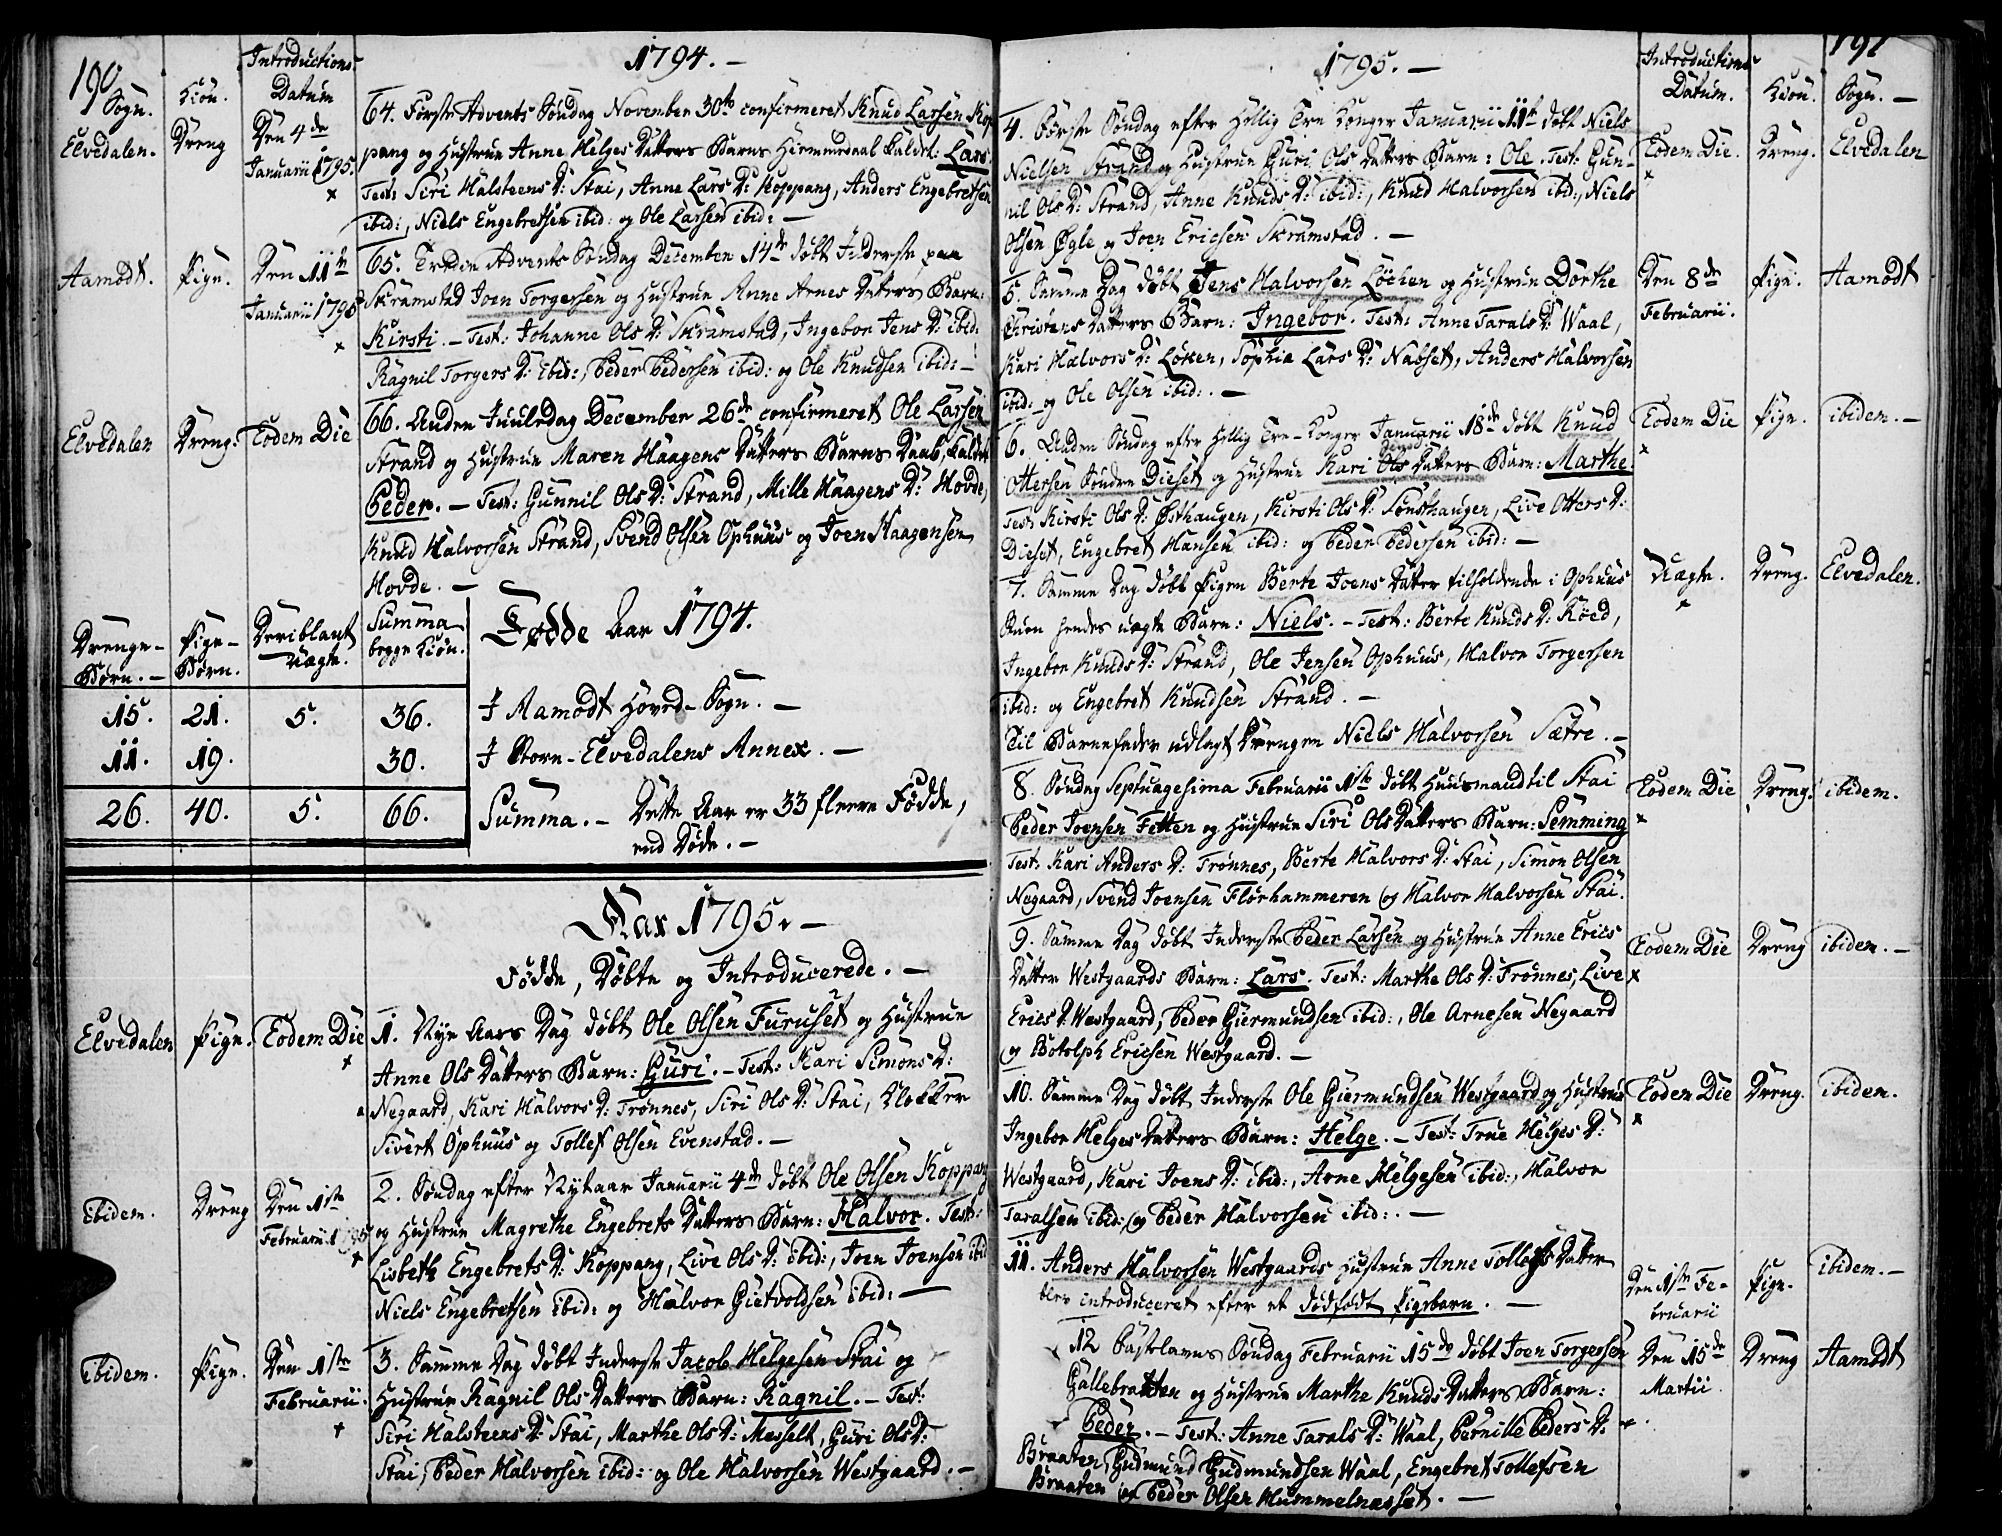 190
1794. —
Sogn.
Kiön.
Introductions
Datum
Elvedalen.
Dreng
Den 4de
Januarii 1795.
64. Første Advents Søndag November 30te confirmeret Knud Larsen Kop
pang og Hustrue Anne Helges Datters Barns Hiemmedaab kaldet: Lars
Test: Siri Halsteens D: Stai, Anne Lars D: Koppang, Anders Engebretsen
ibid:, Niels Engebretsen ibid: og Ole Larsen ibid: —
Aamodt.
Pige.
Den 11te
Januarii 1795
65. Tredie Advents Søndag December 14de døbt Inderste paa
Skramstad Joen Torgersen og Hustrue Anne Arnes Datters Barn:
Kirsti. — Test: Johanne Ols D: Skramstad, Ingebor Jens D: ibid:
Ragnil Torgers D: ibid:, Peder Pedersen ibid: og Ole Knudsen ibid: —
Elvedalen
Dreng.
Eodem Die
66. Anden Juuledag December 26de confirmeret Ole Larsen
Strand og Hustrue Maren Haagens Datters Barns Daab, kaldet
Peder. — Test: Gunnil Ols D: Strand, Mille Haagens D: Hovde,
Knud Halvorsen Strand, Svend Olsen Ophuus og Joen Haagensen
Hovde. —
Drenge-
Børn. —
Pige-
Børn.
Deriblant
uægte.
Summa
begge Kiön.
Fødde Aar 1794.
15. 21. 5. 36. I Aamodt Hoved-Sogn. —
11. 19. 30. I Stor-Elvedalens Annex. —
26. 40. 5. 66. Summa. — Dette Aar er 33 fleere Fødde,
end Døde. —
Aar 1795. —
Fødde, Døbte og Introducerede. —
Elvedalen
Pige.
Eodem Die
1. Nye Aars Dag døbt Ole Olsen Furuset og Hustrue
Anne Ols Datters Barn: Guri. — Test: Kari Simons D:
Negaard, Kari Halvors D: Trønnes, Siri Ols D: Stai, Klokker
Sivert Ophuus og Tollef Olsen Evenstad. —
ibidem.
Dreng
Den 1ste
Februarii 1795
2. Søndag efter Nytaar Januarii 4de døbt Ole Olsen Koppang
og Hustrue Magrethe Engebrets Datters Barn: Halvor. Test:
Lisbeth Engebrets D: Koppang, Live Ols D: ibid:, Joen Joensen ibid
Niels Engebretsen ibid: og Halvor Gietvoldsen ibid: —
ibidem.
Pige.
Den 1ste
Februarii.
3. Samme Dag døbt Inderste Jacob Helgesen Stai og
Hustrue Ragnil Ols Datters Barn: Ragnil. — Test:
Siri Halsteens D: Stai, Marthe Ols D: Messelt, Guri Ols D:
Stai, Peder Halvorsen ibid: og Ole Halvorsen Westgaard. —
191
1795. —
Introductions
Datum.
Kiön.
Sogn. —
4. Første Søndag efter Hellig Tre Konger Januarii 11te døbt Niels
Nielsen Strand og Hustrue Guri Ols Datters Barn: Ole. Test: Gun-
nil Ols D: Strand, Anne Knuds D: ibid:, Knud Halvorsen ibid:, Niels
Olsen Øgle og Joen Ericsen Skramstad. —
Eodem Die.
Dreng.
Elvedalen
5. Samme Dag døbt Jens Halvorsen Löcken og Hustrue Dorthe
Christens Datters Barn: Ingebor. Test: Anne Tarals D: Waal,
Kari Halvors D: Löken, Sophia Lars D: Nabset, Anders Halvorsen
ibid: og Ole Olsen ibid:. —
Den 8de
Februarii.
Pige.
Aamodt
6. Anden Søndag efter Hellig Tre-Konger Januarii 18de døbt Knud
Ottersen Søndre Dieset og Hustrue Kari Ols Datters Barn: Marthe.
Test: Kirsti Ols D: Østhaugen, Kirsti Ols D: Sønsthaugen, Live Otters D:
Dieset, Engebret Hansen ibid: og Peder Pedersen ibid: —
Eodem Die
Pige.
ibidem. —
7. Samme Dag døbt Pigen Berte Joens Datter tilholdende i Ophuus
hendes uægte Barn: Niels. — Test: Berte Knuds D: Koed,
Ingebor Knuds D: Strand, Ole Jensen Ophuus, Halvor Torgersen
ibid: og Engebret Knudsen Strand. —
Til Barnefader udlagt Drengen Niels Halvorsen Sætre. —
Uægte.
Dreng.
Elvedalen.
8. Søndag Septuagesima Februarii 1ste døbt Huusmand til Stai
Peder Joensen Fetten og Hustrue Siri Ols Datters Barn: Semming
Test: Kari Anders D: Trønnes, Berte Halvors D: Stai, Simon Olsen
Negaard, Svend Joensen Florhammeren og Halvor Halvorsen Stai.
Eodem Die
Dreng.
ibidem.
9. Samme Dag døbt Inderste Peder Larsen og Hustrue Anne Erics
Datter Westgaards Barn: Lars. Test: Marthe Ols D: Trønnes, Live
Erics D: Westgaard, Peder Giermundsen ibid:, Ole Arnesen Negaard
og Botolph Ericsen Westgaard. —
Eodem Die
Dreng
ibidem. —
10. Samme Dag døbt Inderste Ole Giermundsen Westgaard og Hustrue
Ingebor Helges Datters Barn: Helge. — Test: True Helges D:
Westgaard, Kari Joens D: ibid:, Arne Helgesen ibid:, Halvor
Taralsen ibid: og Peder Halvorsen ibid:. —
Eodem Die
Dreng.
ibidem.
11. Anders Halvorsen Westgaards Hustrue Anne Tollefs Datter
blev introduceret efter et dødfødt Pigebarn. —
Den 1ste Fe-
bruarii
Pige.
ibidem. —
12 Fastelavns Søndag Februarii 15de døbt Joen Torgersen
Gallebratten og Hustrue Marthe Knuds Datters Barn:
Peder. — Test: Anne Tarals D: Waal, Pernille Peders D:
Braaten, Gudmund Gudmundsen Waal, Engebret Tollefsen
Braaten og Peder Olsen Hummelnæsset. —
Den 15de
Martii.
Dreng
Aamodt